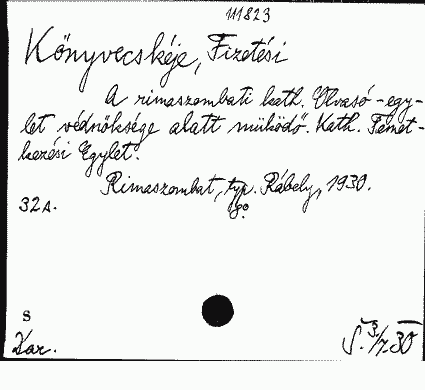 111823
Könyvecskéje, Fizetési
A rimaszombati kath. Olvasó-egy-
let védnöksége alatt működő Kath. Temet-
kezési Egylet.
Rimaszombat, typ. Rábely, 1930.
8°
32A.
s